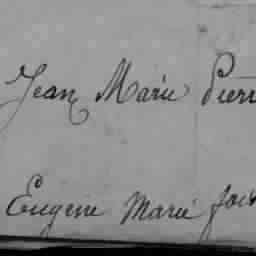 Jean Marie Pierr
Eugene Marie